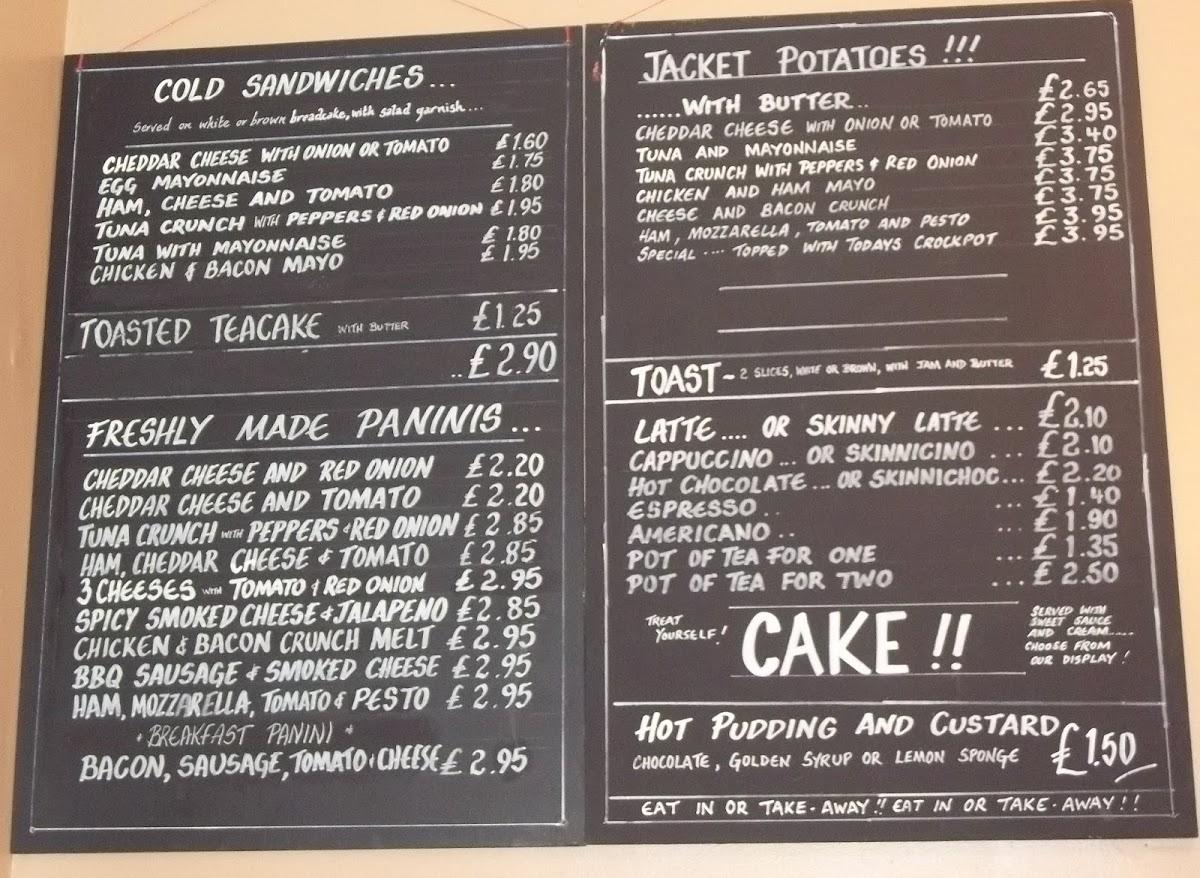 COLD SANDWICHES...
Served on white or brown breadcake, with salad garnish...
CHEDDAR CHEESE WITH ONION OR TOMATO £1.60
EGG MAYONNAISE £1.75
HAM, CHEESE AND TOMATO £1.80
TUNA CRUNCH WITH PEPPERS & RED ONION £1.95
TUNA WITH MAYONNAISE £1.80
CHICKEN & BACON MAYO £1.95
TOASTED TEACAKE WITH BUTTER £1.25
..£2.90
FRESHLY MADE PANINIS...
CHEDDAR CHEESE AND RED ONION £2.20
CHEDDAR CHEESE AND TOMATO £2.20
TUNA CRUNCH WITH PEPPERS & RED ONION £2.85
HAM, CHEDDAR CHEESE & TOMATO £2.85
3 CHEESES WITH TOMATO & RED ONION £2.95
SPICY SMOKED CHEESE & JALAPENO £2.85
CHICKEN & BACON CRUNCH MELT £2.95
BBQ SAUSAGE & SMOKED CHEESE £2.95
HAM, MOZZARELLA, TOMATO & PESTO £2.95
* BREAKFAST PANINI *
BACON, SAUSAGE, TOMATO & CHEESE £2.95
JACKET POTATOES !!!
......WITH BUTTER... £2.65
CHEDDAR CHEESE WITH ONION OR TOMATO £2.95
TUNA AND MAYONNAISE £3.40
TUNA CRUNCH WITH PEPPERS & RED ONION £3.75
CHICKEN AND HAM MAYO £3.75
CHEESE AND BACON CRUNCH £3.75
HAM, MOZZARELLA, TOMATO AND PESTO £3.95
SPECIAL .... TOPPED WITH TODAYS CROCKPOT £3.95
TOAST - 2 SLICES, WHITE OR BROWN, WITH JAM AND BUTTER £1.25
LATTE.... OR SKINNY LATTE ... £2.10
CAPPUCCINO ... OR SKINNICINO ... £2.10
HOT CHOCOLATE... OR SKINNICHOC... £2.20
ESPRESSO .. ... £1.40
AMERICANO .. ... £1.90
POT OF TEA FOR ONE ... £1.35
POT OF TEA FOR TWO ... £2.50
TREAT YOURSELF!
CAKE !!
SERVED WITH
SWEET SAUCE
AND CREAM.....
CHOOSE FROM
OUR DISPLAY!
HOT PUDDING AND CUSTARD £1.50
CHOCOLATE, GOLDEN SYRUP OR LEMON SPONGE
EAT IN OR TAKE-AWAY!! EAT IN OR TAKE-AWAY!!